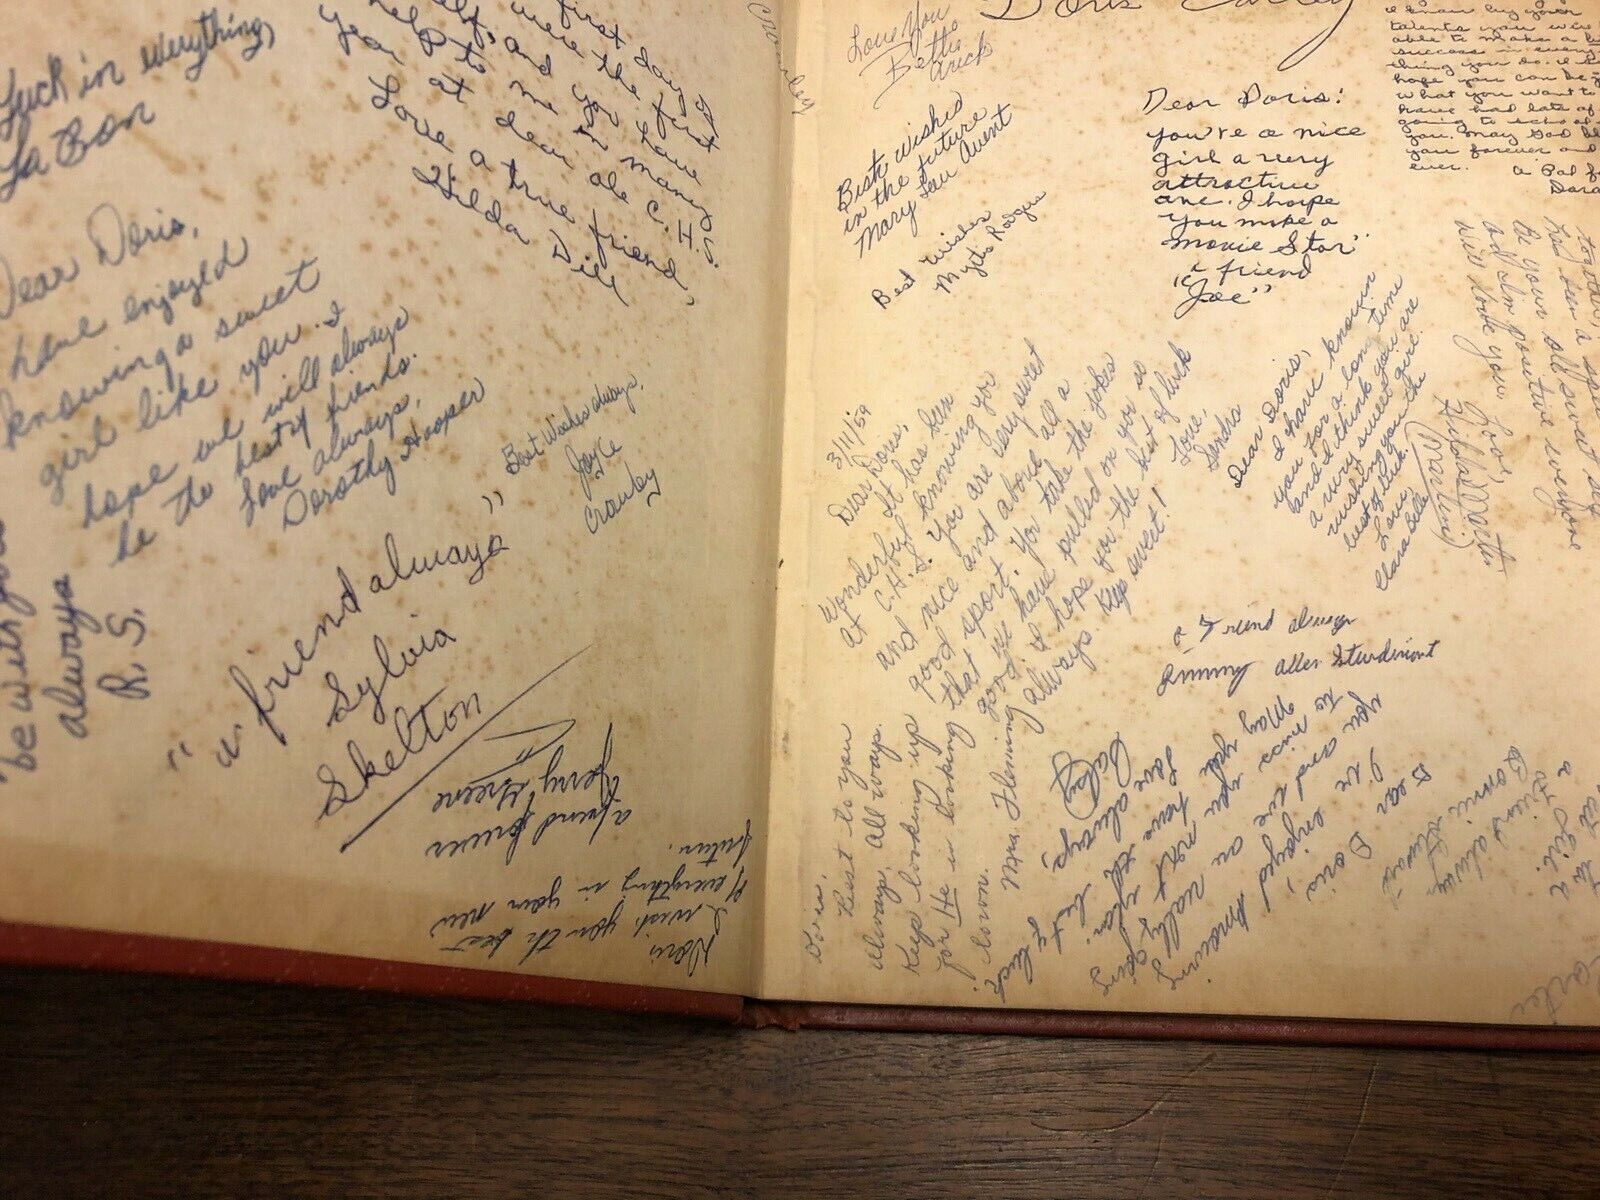 Luck in everything,
La Bon
first day
were the first
and you
me love
to dear ole C.H.S.
Love a true friend,
Hilda Dill
Dear Doris,
have enjoyed
knowing a sweet
girl like you. I
hope we will always
be the best of friends.
Love always,
Dorothy Hooper
be with you
always
R.S.
"Best Wishes always,
Joyce
Crowley
"a friend always"
Sylvia
Skelton
a friend forever
Jerry Greene
Doris,
I wish you the best
of everything in your new
future.
Crowley
Love You
Betts
Arick
Doris
Best Wishes
in the future
Mary Lou Avent
Best Wishes
Myrtis Rodgers
Dear Doris:
You're a nice
girl a very
attractive
one. I hope
you make a
movie Star"
"a friend
Joe"
I know by your
talents you were
able to make a
success in every
thing you do. I
hope you can be
what you want to
have had lots of
going to school
you. May God
you forever and
ever.
a Pal
together,
has been a
Be your ole sweet self
and I'm positive everyone
will love you.
Love,
Hilda Martin
(Martini)
3/11/59
Dear Doris,
It has been
wonderful knowing you
at C.H.S. You are very sweet
and nice and above all a
good sport. You take the jokes
that we have pulled on you so
good. I hope for the best of luck
always. Keep sweet!
Love,
Sandra
Dear Doris,
I have known
you for a long time
and I think you are
a very sweet girl.
wishing you the
best of luck.
Love,
Clara Belle
a Friend always
Jimmy Allen Sturdivant
Doris,
Best to you
always, all ways.
Keep looking up
for He is looking
down.
Mrs. Fleming
Dear Doris,
I've enjoyed knowing
you and we are really going
to miss you next year.
May you have the best of luck
Love always,
a friend always
Bonnie Stewart